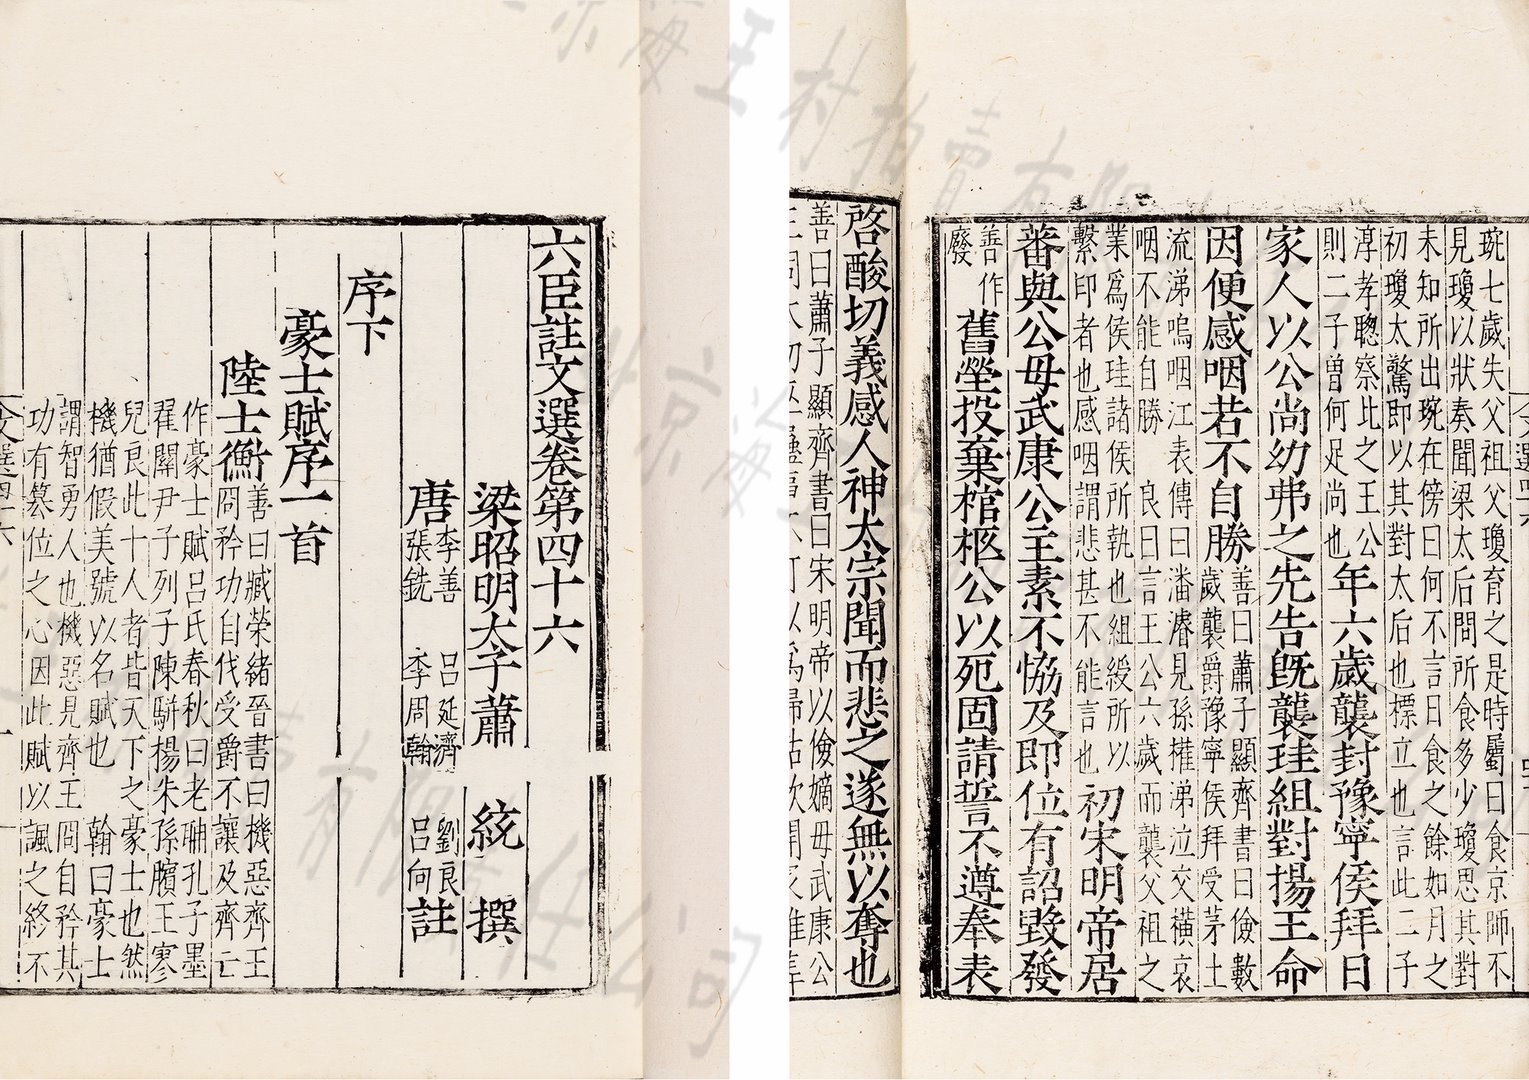 六臣註文選卷第四十六
梁昭明太子蕭 統 撰
唐 李善 呂延濟 劉良
張銑 李周翰 呂向 註
序下
豪士賦序一首
陸士衡 善曰臧榮緒晉書曰機惡齊王
冏矜功自伐受爵不讓及齊亡
作豪士賦呂氏春秋曰老聃孔子墨
翟關尹子列子陳騈揚朱孫臏王寥
兒良此十人者皆天下之豪士也然
機猶假美號以名賦也 翰曰豪士
謂智勇人也機惡見齊王冏自矜其
功有簒位之心因此賦以諷之終不
文選四十六 一
琬七歲失父祖父瓊育之是時屬日食京師不
見瓊以狀奏聞梁太后問所食多少瓊思其對
未知所出琬在傍曰何不言日食之餘如月之
初瓊太驚即以其對太后也標立也言此二子
淳孝聰察比之王公
則二子曾何足尚也 年六歲襲封豫寧侯拜日
家人以公尚幼弗之先告旣襲珪組對揚王命
因便感咽若不自勝 善曰蕭子顯齊書曰儉數
歲襲爵豫寧侯拜受茅土
流涕嗚咽江表傳曰潘濬見孫權涕泣交橫哀
咽不能自勝 良曰言王公六歲而襲父祖之
業爲侯珪諸侯所執也組綬所以
繫印者也感咽謂悲甚不能言也 初宋明帝居
蕃與公母武康公主素不恊及即位有詔毀發
善作
廢 舊塋投棄棺柩公以死固請誓不遵奉表
啓酸切義感人神太宗聞而悲之遂無以奪也
善曰蕭子顯齊書曰宋明帝以儉嫡母武康公
北京海王村拍賣有限責任公司